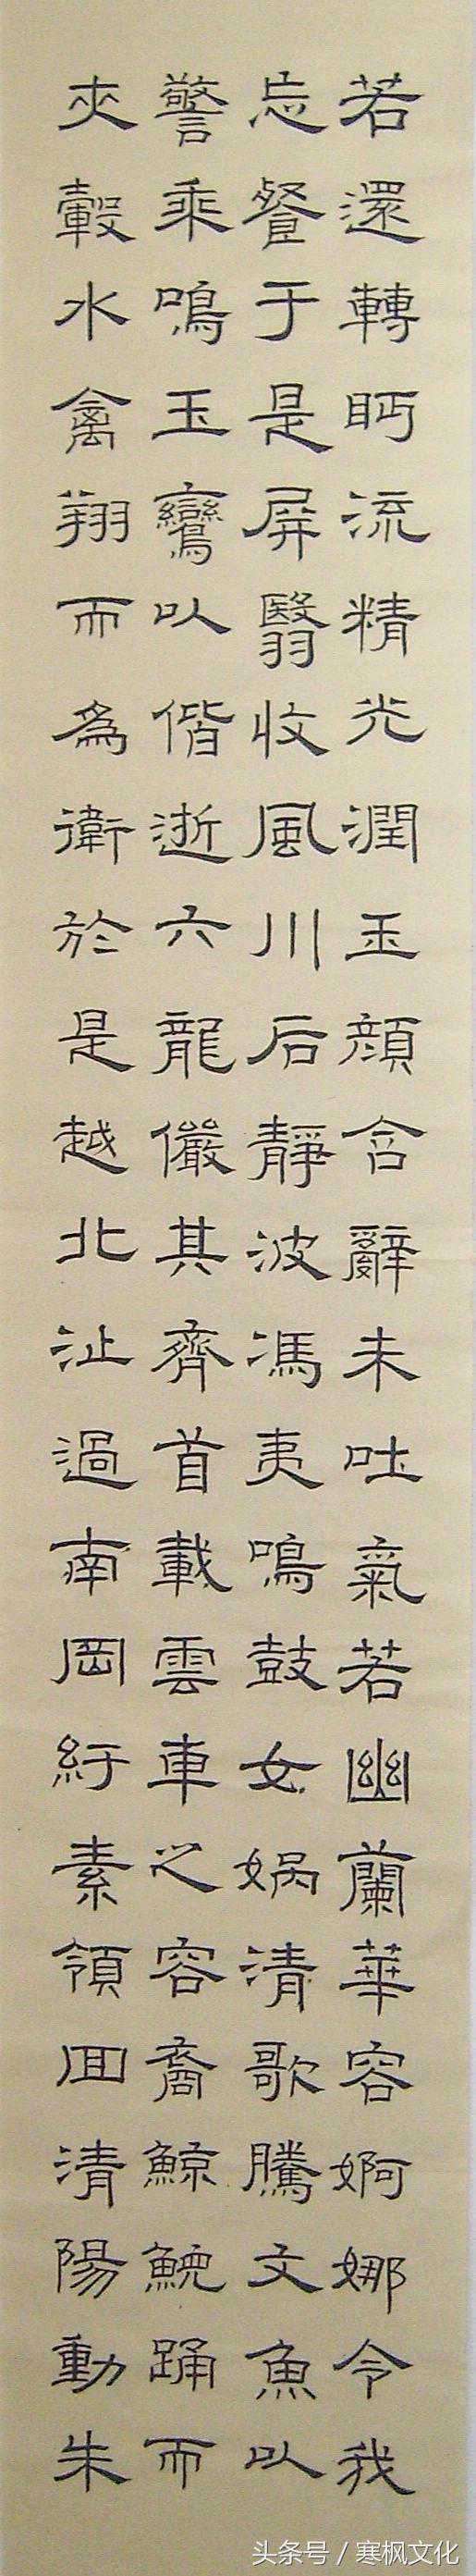 若還轉眄流精光潤玉顔含辭未吐氣若幽蘭華容婀娜令我
忘餐于是屏翳收風川后靜波馮夷鳴鼓女娲清歌騰文魚以
警乘鳴玉鸞以偕逝六龍儼其齊首載雲車之容裔鯨鯢踊而
夾轂水禽翔而為衛於是越北沚過南岡紆素領回清陽動朱
头条号 / 寒枫文化